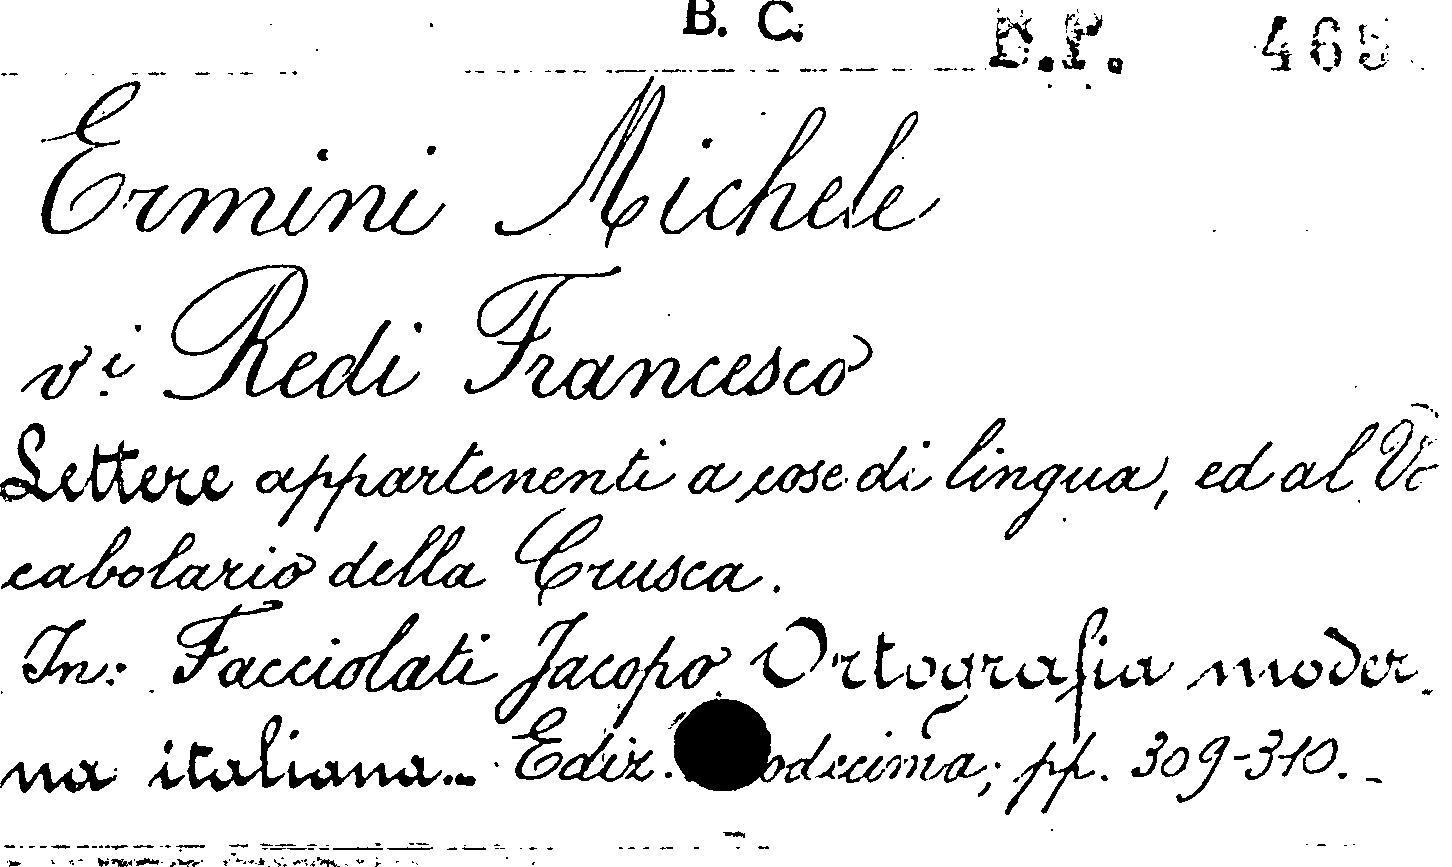 B. C. B.P. 465
Ermini Michele
vi Redi Francesco
Lettere appartenenti a cose di lingua, ed al Vo
cabolario della Crusca.
In: Facciolati Jacopo Ortografia moder-
na italiana... Ediz. pp. 309-310.